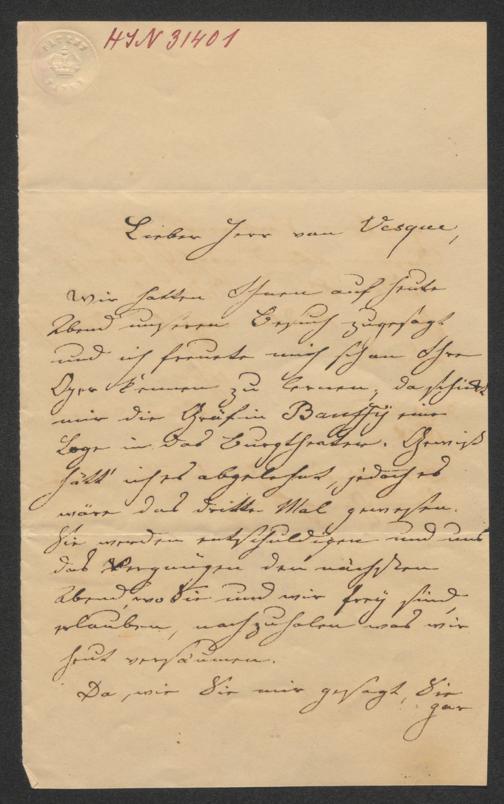 HIN 31401
Lieber Herr von Vesque,
Wir hatten Ihnen auf heute
Abend unseren Besuch zugesagt
und ich freuete mich schon Ihre
Oper kennen zu lernen; da schickt
mir die Gräfin Banffÿ eine
Loge in das Burgtheater. Gewiß
hätt' ich es abgelehnt, jedoch es
wäre das dritte Mal gewesen.
Sie werden entschuldigen und uns
das Vergnügen den nächsten
Abend, wo Sie und wir freÿ sind,
erlauben, nachzuholen was wir
heut versäumen.
Da, wie Sie mir gesagt, Sie
gar